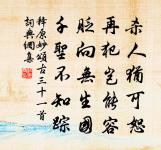 杀人犹可恕
再犯岂能容
贬向无生国
千圣不知踪
释原妙颂古三十一首
词典网集